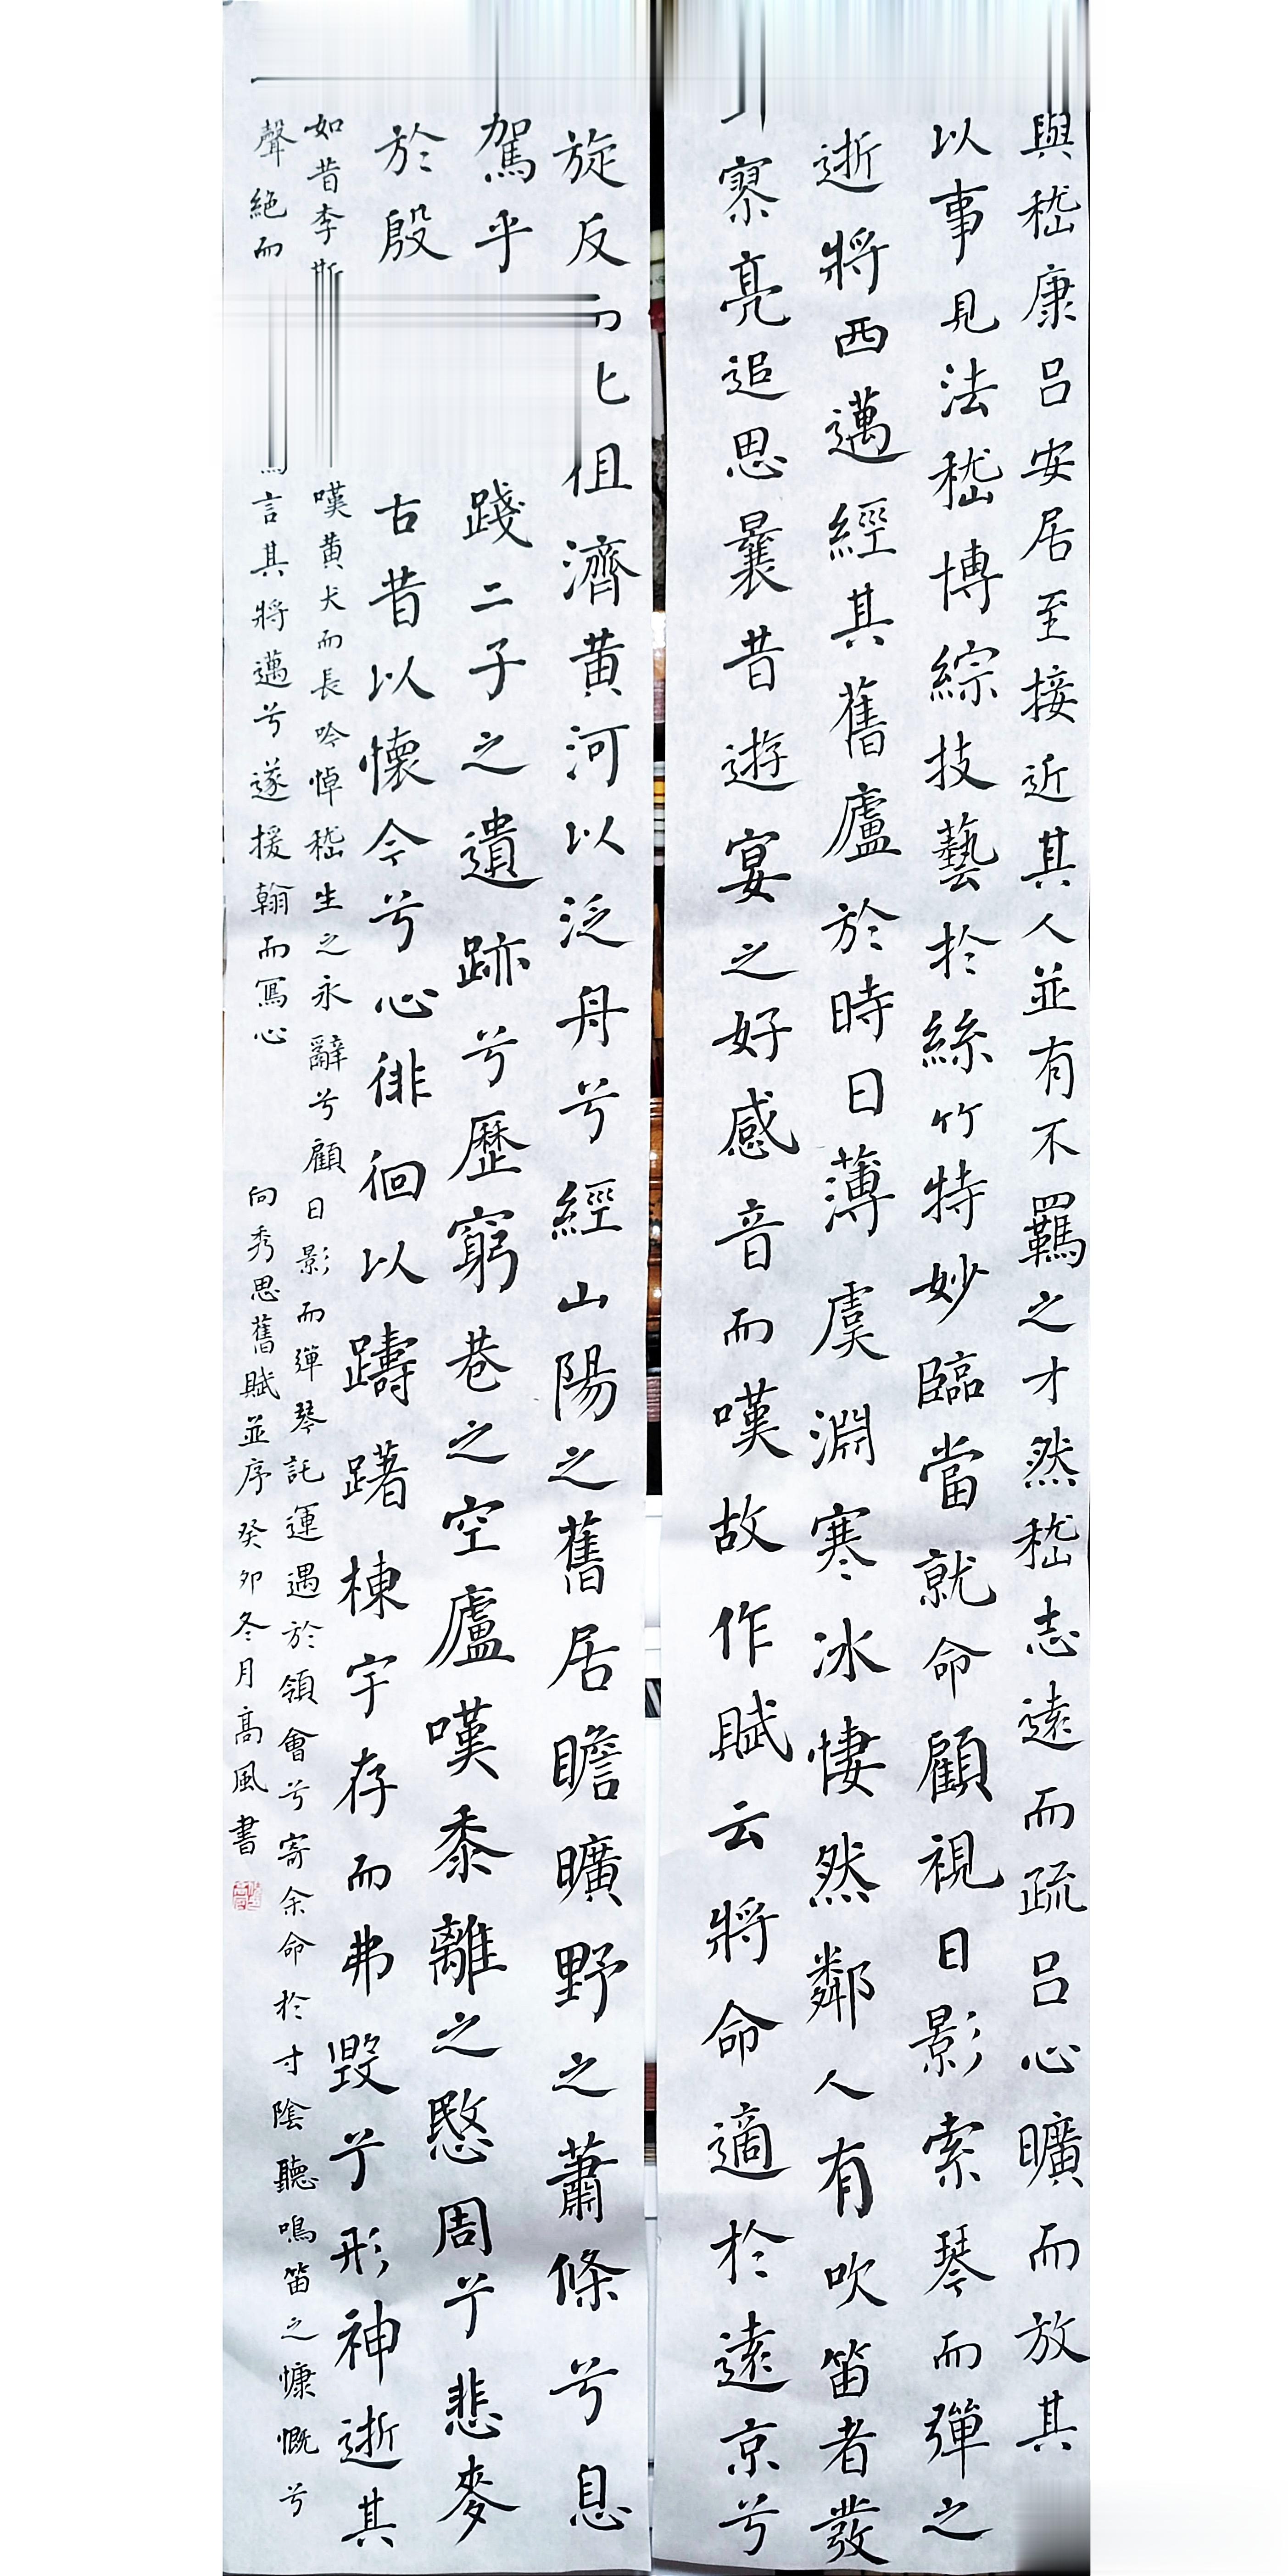 與嵇康吕安居至接近其人並有不羈之才然嵇志遠而疏吕心曠而放其
以事見法嵇博綜技藝於絲竹特妙臨當就命顧視日影索琴而彈之
逝將西邁經其舊廬於時日薄虞淵寒冰悽然鄰人有吹笛者發
寥亮追思曩昔遊宴之好感音而嘆故作賦云將命適於遠京兮
旋反
徂濟黄河以泛舟兮經山陽之舊居瞻曠野之蕭條兮息
駕乎
踐二子之遺跡兮歷窮巷之空廬嘆黍離之愍周兮悲麥
於殷
古昔以懷今兮心徘徊以躊躇棟宇存而弗毀兮形神逝其
如昔李斯
嘆黄犬而長吟悼嵇生之永辭兮顧日影而彈琴託運遇於領會兮寄余命於寸陰聽鳴笛之慷慨兮
聲絕而
言其將邁兮遂援翰而寫心
向秀思舊賦並序癸卯冬月高風書